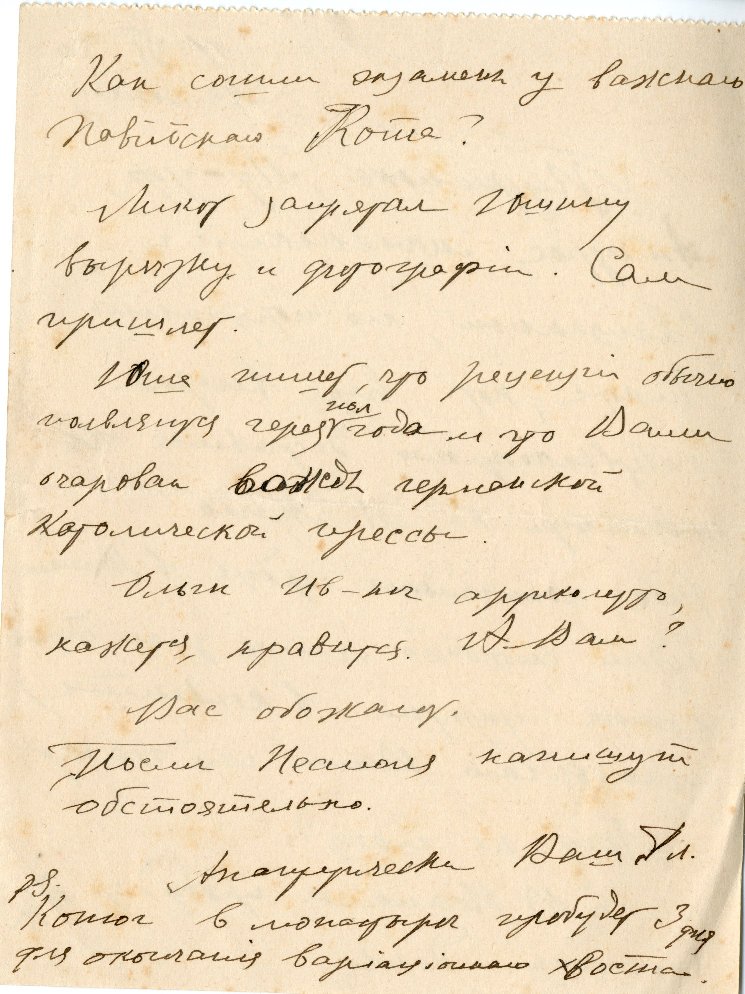 Как сошли экзамены у важнаго
Кота?
запрятал
вырезку и фотографiи. Сам
пришлет.
Юша пишет, что рецензiи обычно
появляются через пол года и что Вами
очарован вождь германской
Католической прессы.
Ольги Ив-ны
кажется, нравится. А Вам?
Вас обожают.
После напишут
обстоятельно.
Ваш
PS.
в монастыре пробудет 3 дня
для окончанiя варiацiоннаго хвоста.